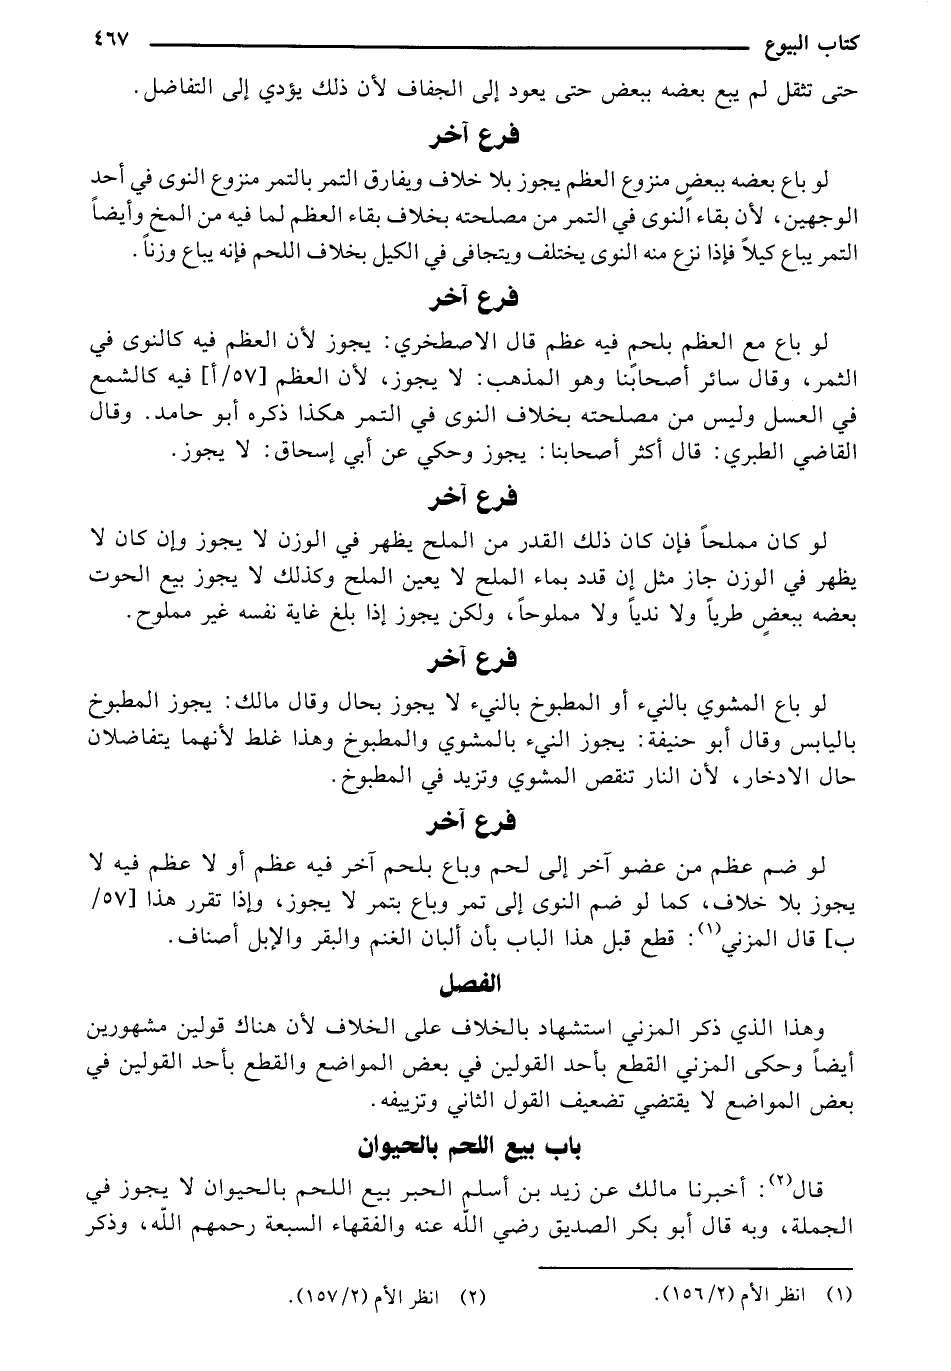 كتاب البيوع ٤٦٧
حتى تثقل لم يبع بعضه ببعض حتى يعود إلى الجفاف لأن ذلك يؤدي إلى التفاضل.
فرع آخر
لو باع بعضه ببعضٍ منزوع العظم يجوز بلا خلاف ويفارق التمر بالتمر منزوع النوى في أحد
الوجهين، لأن بقاء النوى في التمر من مصلحته بخلاف بقاء العظم لما فيه من المخ وأيضاً
التمر يباع كيلاً فإذا نزع منه النوى يختلف ويتجافى في الكيل بخلاف اللحم فإنه يباع وزناً.
فرع آخر
لو باع مع العظم بلحمٍ فيه عظم قال الاصطخري: يجوز لأن العظم فيه كالنوى في
الثمر، وقال سائر أصحابنا وهو المذهب: لا يجوز، لأن العظم [٥٧/أ] فيه كالشمع
في العسل وليس من مصلحته بخلاف النوى في التمر هكذا ذكره أبو حامد. وقال
القاضي الطبري: قال أكثر أصحابنا: يجوز وحكي عن أبي إسحاق: لا يجوز.
فرع آخر
لو كان مملحاً فإن كان ذلك القدر من الملح يظهر في الوزن لا يجوز وإن كان لا
يظهر في الوزن جاز مثل إن قدد بماء الملح لا يعين الملح وكذلك لا يجوز بيع الحوت
بعضه ببعضٍ طرياً ولا ندياً ولا مملوحاً، ولكن يجوز إذا بلغ غاية نفسه غير مملوح.
فرع آخر
لو باع المشوي بالنيء أو المطبوخ بالنيء لا يجوز بحال وقال مالك: يجوز المطبوخ
باليابس وقال أبو حنيفة: يجوز النيء بالمشوي والمطبوخ وهذا غلط لأنهما يتفاضلان
حال الادخار، لأن النار تنقص المشوي وتزيد في المطبوخ.
فرع آخر
لو ضم عظم من عضو آخر إلى لحم وباع بلحم آخر فيه عظم أو لا عظم فيه لا
يجوز بلا خلاف، كما لو ضم النوى إلى تمر وباع بتمر لا يجوز، وإذا تقرر هذا [٥٧/
ب] قال المزني(١): قطع قبل هذا الباب بأن ألبان الغنم والبقر والإبل أصناف.
الفصل
وهذا الذي ذكر المزني استشهاد بالخلاف على الخلاف لأن هناك قولين مشهورين
أيضاً وحكى المزني القطع بأحد القولين في بعض المواضع والقطع بأحد القولين في
بعض المواضع لا يقتضي تضعيف القول الثاني وتزييفه.
باب بيع اللحم بالحيوان
قال(٢): أخبرنا مالك عن زيد بن أسلم الحبر بيع اللحم بالحيوان لا يجوز في
الجملة، وبه قال أبو بكر الصديق رضي الله عنه والفقهاء السبعة رحمهم الله، وذكر
(١) انظر الأم (١٥٦/٢). (٢) انظر الأم (١٥٧/٢).